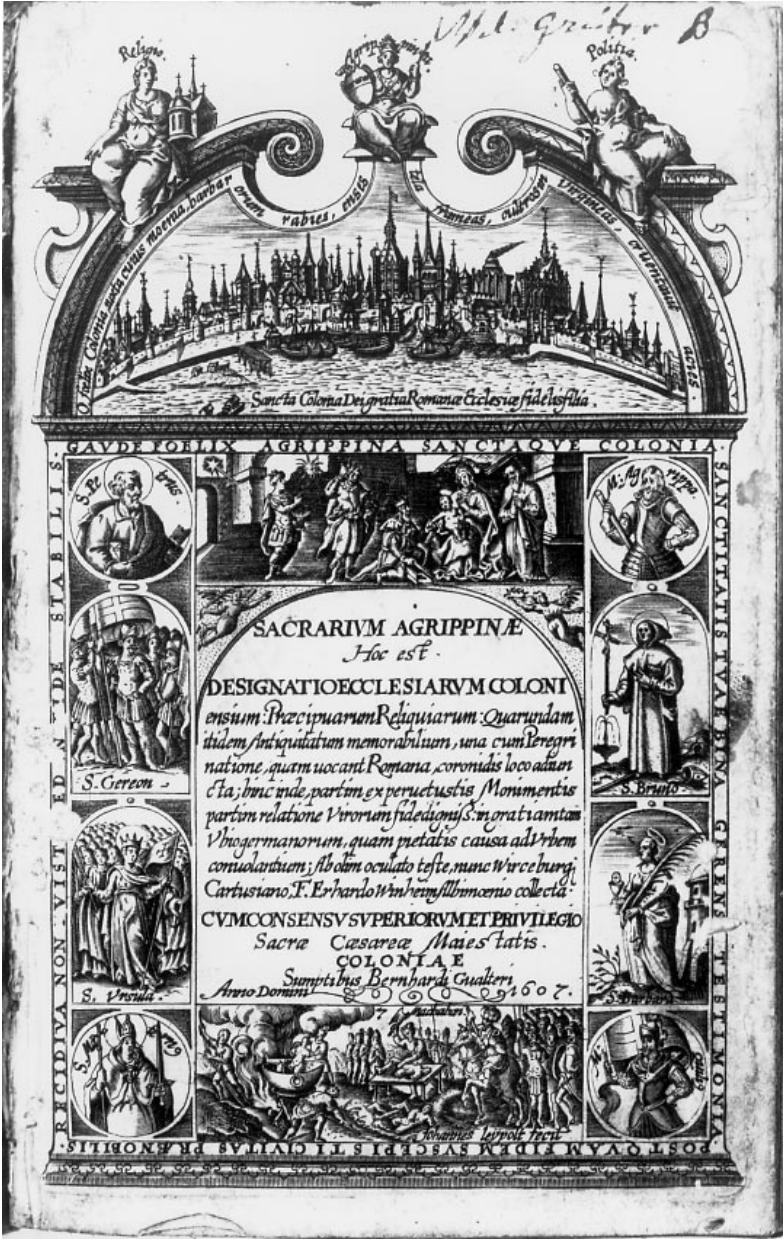 Grüter B
Religio.
Agrippina
Politia.
O felix Colonia, nota cuius moenia, barbar
orum rabies, ensis
Virgineas, cruentauit
Sancta Colonia Dei gratia Romanæ Ecclesiæ fidelis filia.
GAVDE FOELIX AGRIPPINA SANCTAQVE COLONIA.
SANCTITATIS TVAE BINA GERENS TESTIMONIA.
POSTQVAM FIDEM SVSCEPISTI CIVITAS PRÆNOBILIS
RECIDIVA NON VIST ED N IDE STABILIS.
S. Petrus.
M. Agrippa.
S. Gereon
S. Bruno.
S. Vrsula.
S. Barbara
S. Maternus
SACRARIVM AGRIPPINÆ
Hoc est.
DESIGNATIO ECCLESIARVM COLONI
ensium: Præcipuarum Reliquiarum: Quarundam
itidem Antiquitatum memorabilium, una cum Peregri
natione, quam uocant Romana, coronidis loco adiun
cta; hinc inde, partim ex peruetustis Monimentis
partim relatione Virorum fide digniss. in gratiam tam
Vbiogermanorum, quam pietatis causa ad Vrbem
conuolantium; Ab olim oculato teste, nunc Wirceburgi
Cartusiano, F. Erhardo Winheim Albimoenio collecta.
CVM CONSENSV SVPERIORVM ET PRIVILEGIO
Sacræ Cæsareæ Maiestatis.
COLONIAE
Sumptibus Bernhardi Gualteri
Anno Domini 1607.
7 Machabei.
Johannes leypolt fecit